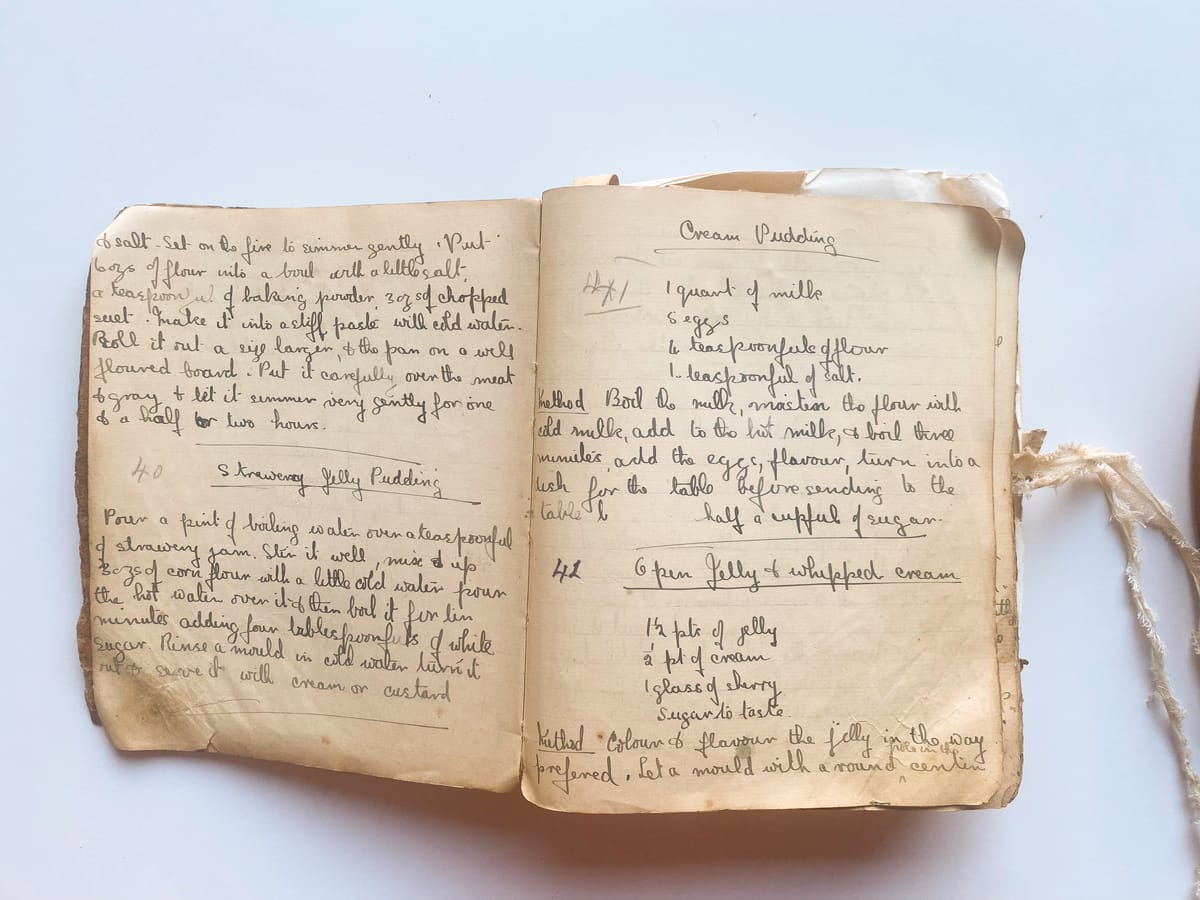 & salt - Set on the fire to simmer gently. Put
6 ozs of flour into a bowl with a little salt,
a teaspoonful of baking powder, 3 ozs of chopped
suet. Make it into a stiff paste with cold water.
Roll it out a size larger, & the pan on a well
floured board. Put it carefully over the meat
& gravy & let it simmer very gently for one
& a half or two hours.
40
Strawery Jelly Pudding
Pour a pint of boiling water over a teaspoonful
of strawery jam. Stir it well, mix & up
3 ozs of corn flour with a little cold water pour
the hot water over it & then boil it for ten
minutes adding four tablespoonfuls of white
sugar. Rinse a mould in cold water turn it
out & serve it with cream or custard
Cream Pudding
41
1 quart of milk
eggs
4 teaspoonfuls of flour
1 teaspoonful of salt.
Method Boil the milk, moisten the flour with
cold milk, add to the hot milk, & boil three
minutes, add the eggs, flavour, turn into a
dish for the table before sending to the
table half a cupful of sugar.
42
Open Jelly & whipped cream
1½ pts of jelly
½ pt of cream
1 glass of sherry
Sugar to taste.
Method Colour & flavour the jelly in the way
prefered. Let a mould with a round hole in the centre